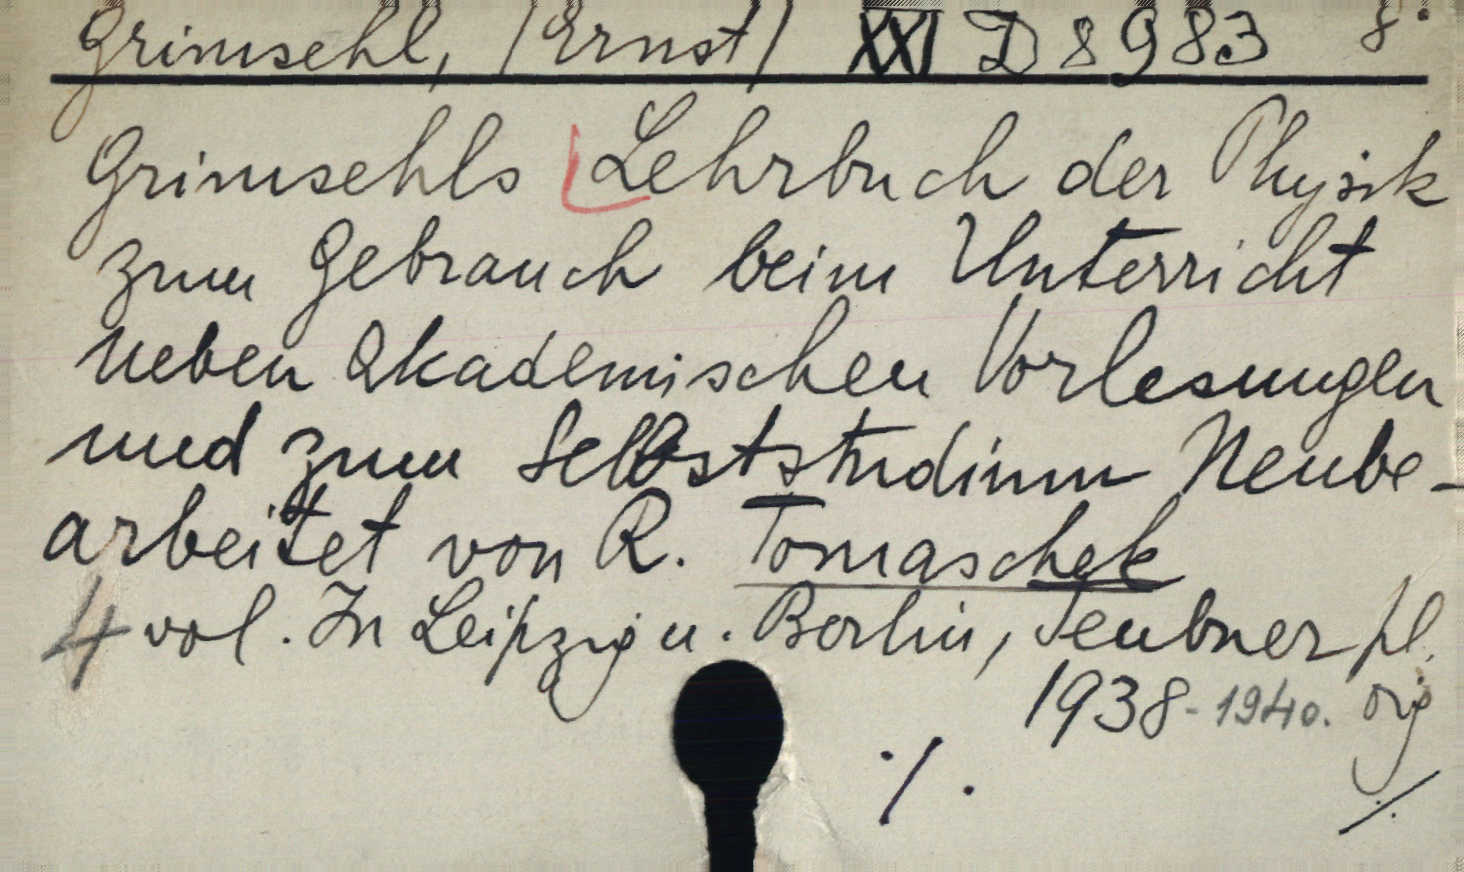 Grimsehl, (Ernst) XXI D 8983 8°
Grimsehls Lehrbuch der Physik
zum Gebrauch beim Unterricht
neben akademischen Vorlesungen
und zum Selbststudium Neube-
arbeitet von R. Tomaschek
4 vol. In Leipzig u. Berlin, Teubner pl.
1938-1940. orig
./.
./.